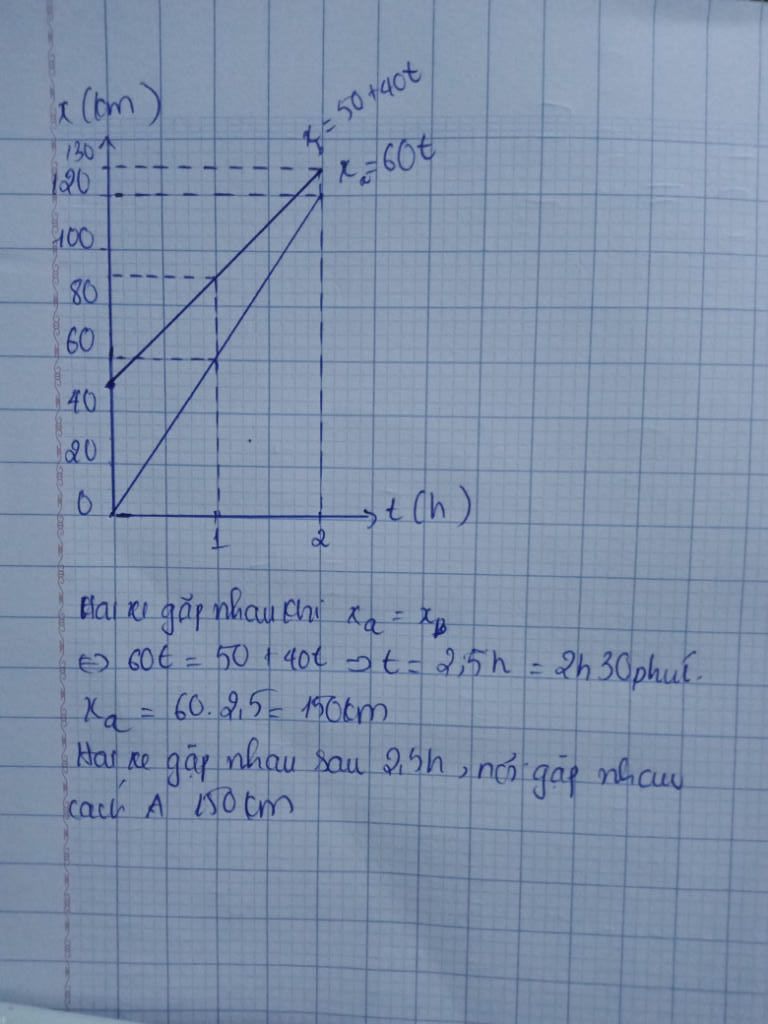 x (km)
x_b = 50 + 40t
x_a = 60t
130
120
100
80
60
40
20
0
1
2
t (h)
Hai xe gặp nhau khi x_a = x_b
⇔ 60t = 50 + 40t ⇒ t = 2,5h = 2h 30 phút.
x_a = 60 . 2,5 = 150 km
Hai xe gặp nhau sau 2,5h, nơi gặp nhau
cách A 150 km